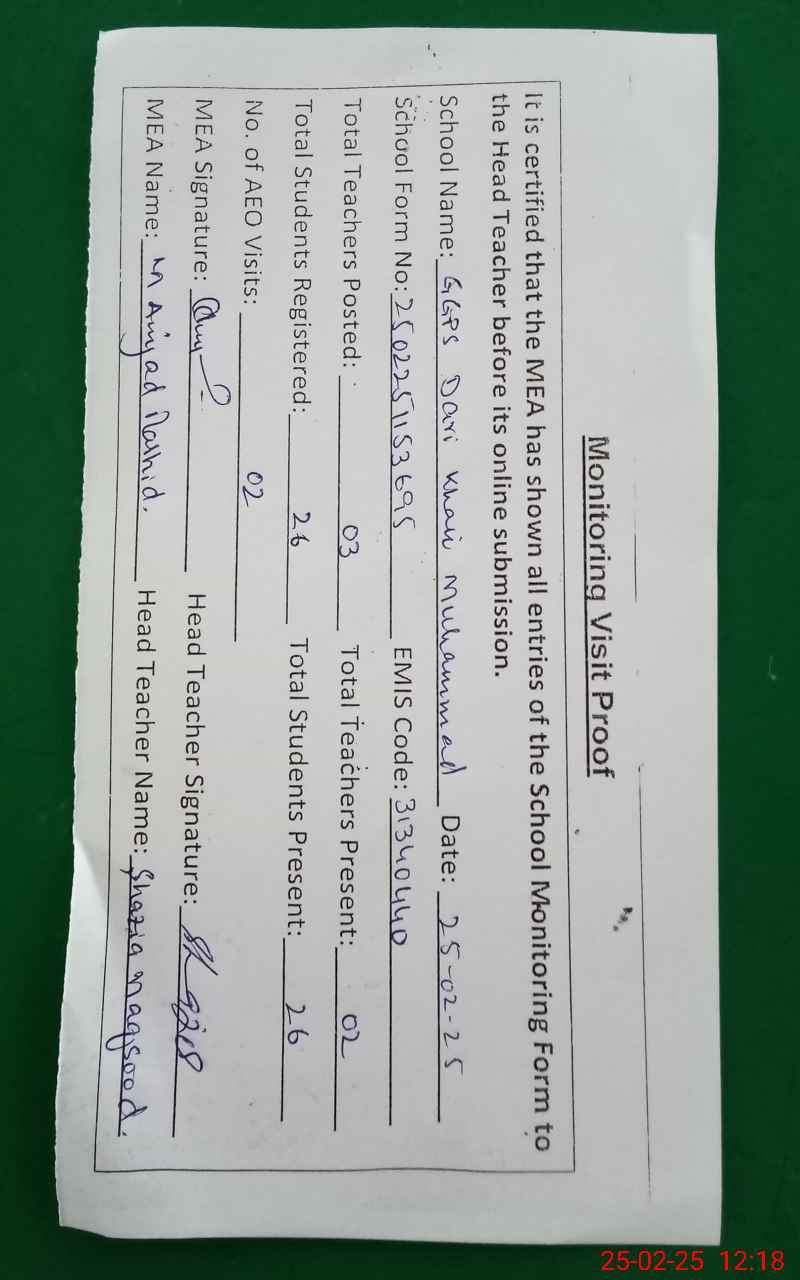 Monitoring Visit Proof
It is certified that the MEA has shown all entries of the School Monitoring Form to
the Head Teacher before its online submission.
School Name: GGPS Dari Khan Muhammad Date: 25-02-25
School Form No: 2502251153695 EMIS Code: 31340440
Total Teachers Posted: 03 Total Teachers Present: 02
Total Students Registered: 26 Total Students Present: 26
No. of AEO Visits: 02
MEA Signature: Head Teacher Signature:
MEA Name: M Amjad Rashid. Head Teacher Name: Shazia maqsood.
25-02-25 12:18